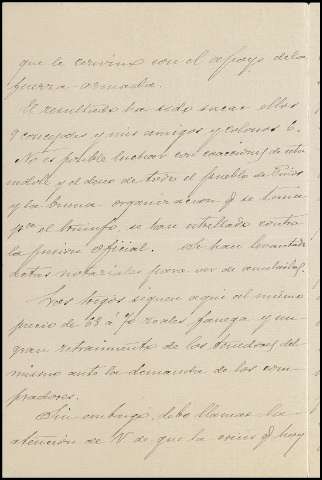 que le convino con el apoyo de la
fuerza armada.
El resultado ha sido sacar ellos
9 concejales y mis amigos y colonos 6.
No es posible luchar con coacciones de esta
indole y el deseo de todo el pueblo de
y la buena organizacion q se tenia
para el triunfo, se han estrellado contra
la presion oficial. Se han levantado
actas notariales para ver de anularlas.
Los trigos siguen aqui al mismo
precio de 68 á 70 reales fanega y un
gran retraimiento de los tenedores del
mismo ante la demanda de los com-
pradores.
Sin embargo, debo llamar la
atención de V. de que la crisis q hay